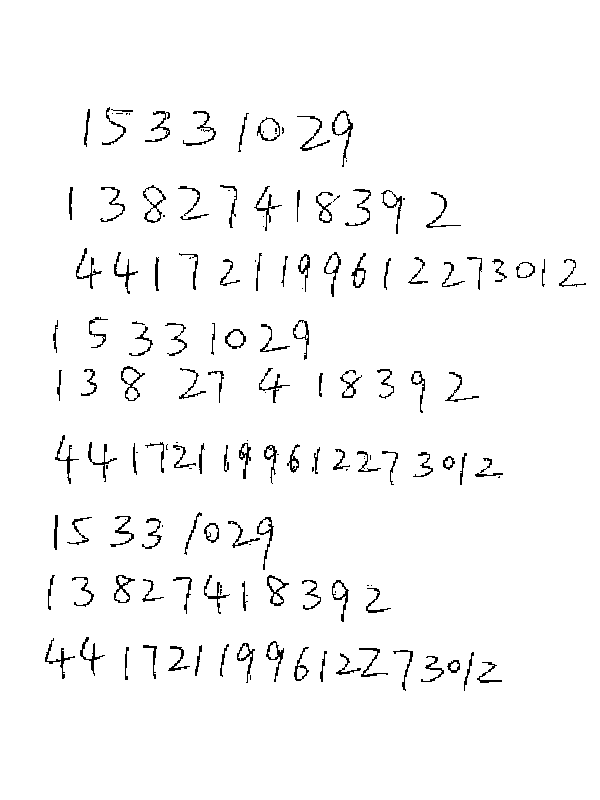 15331029
13827418392
441721199612273012
15331029
13827418392
441721199612273012
15331029
13827418392
441721199612273012